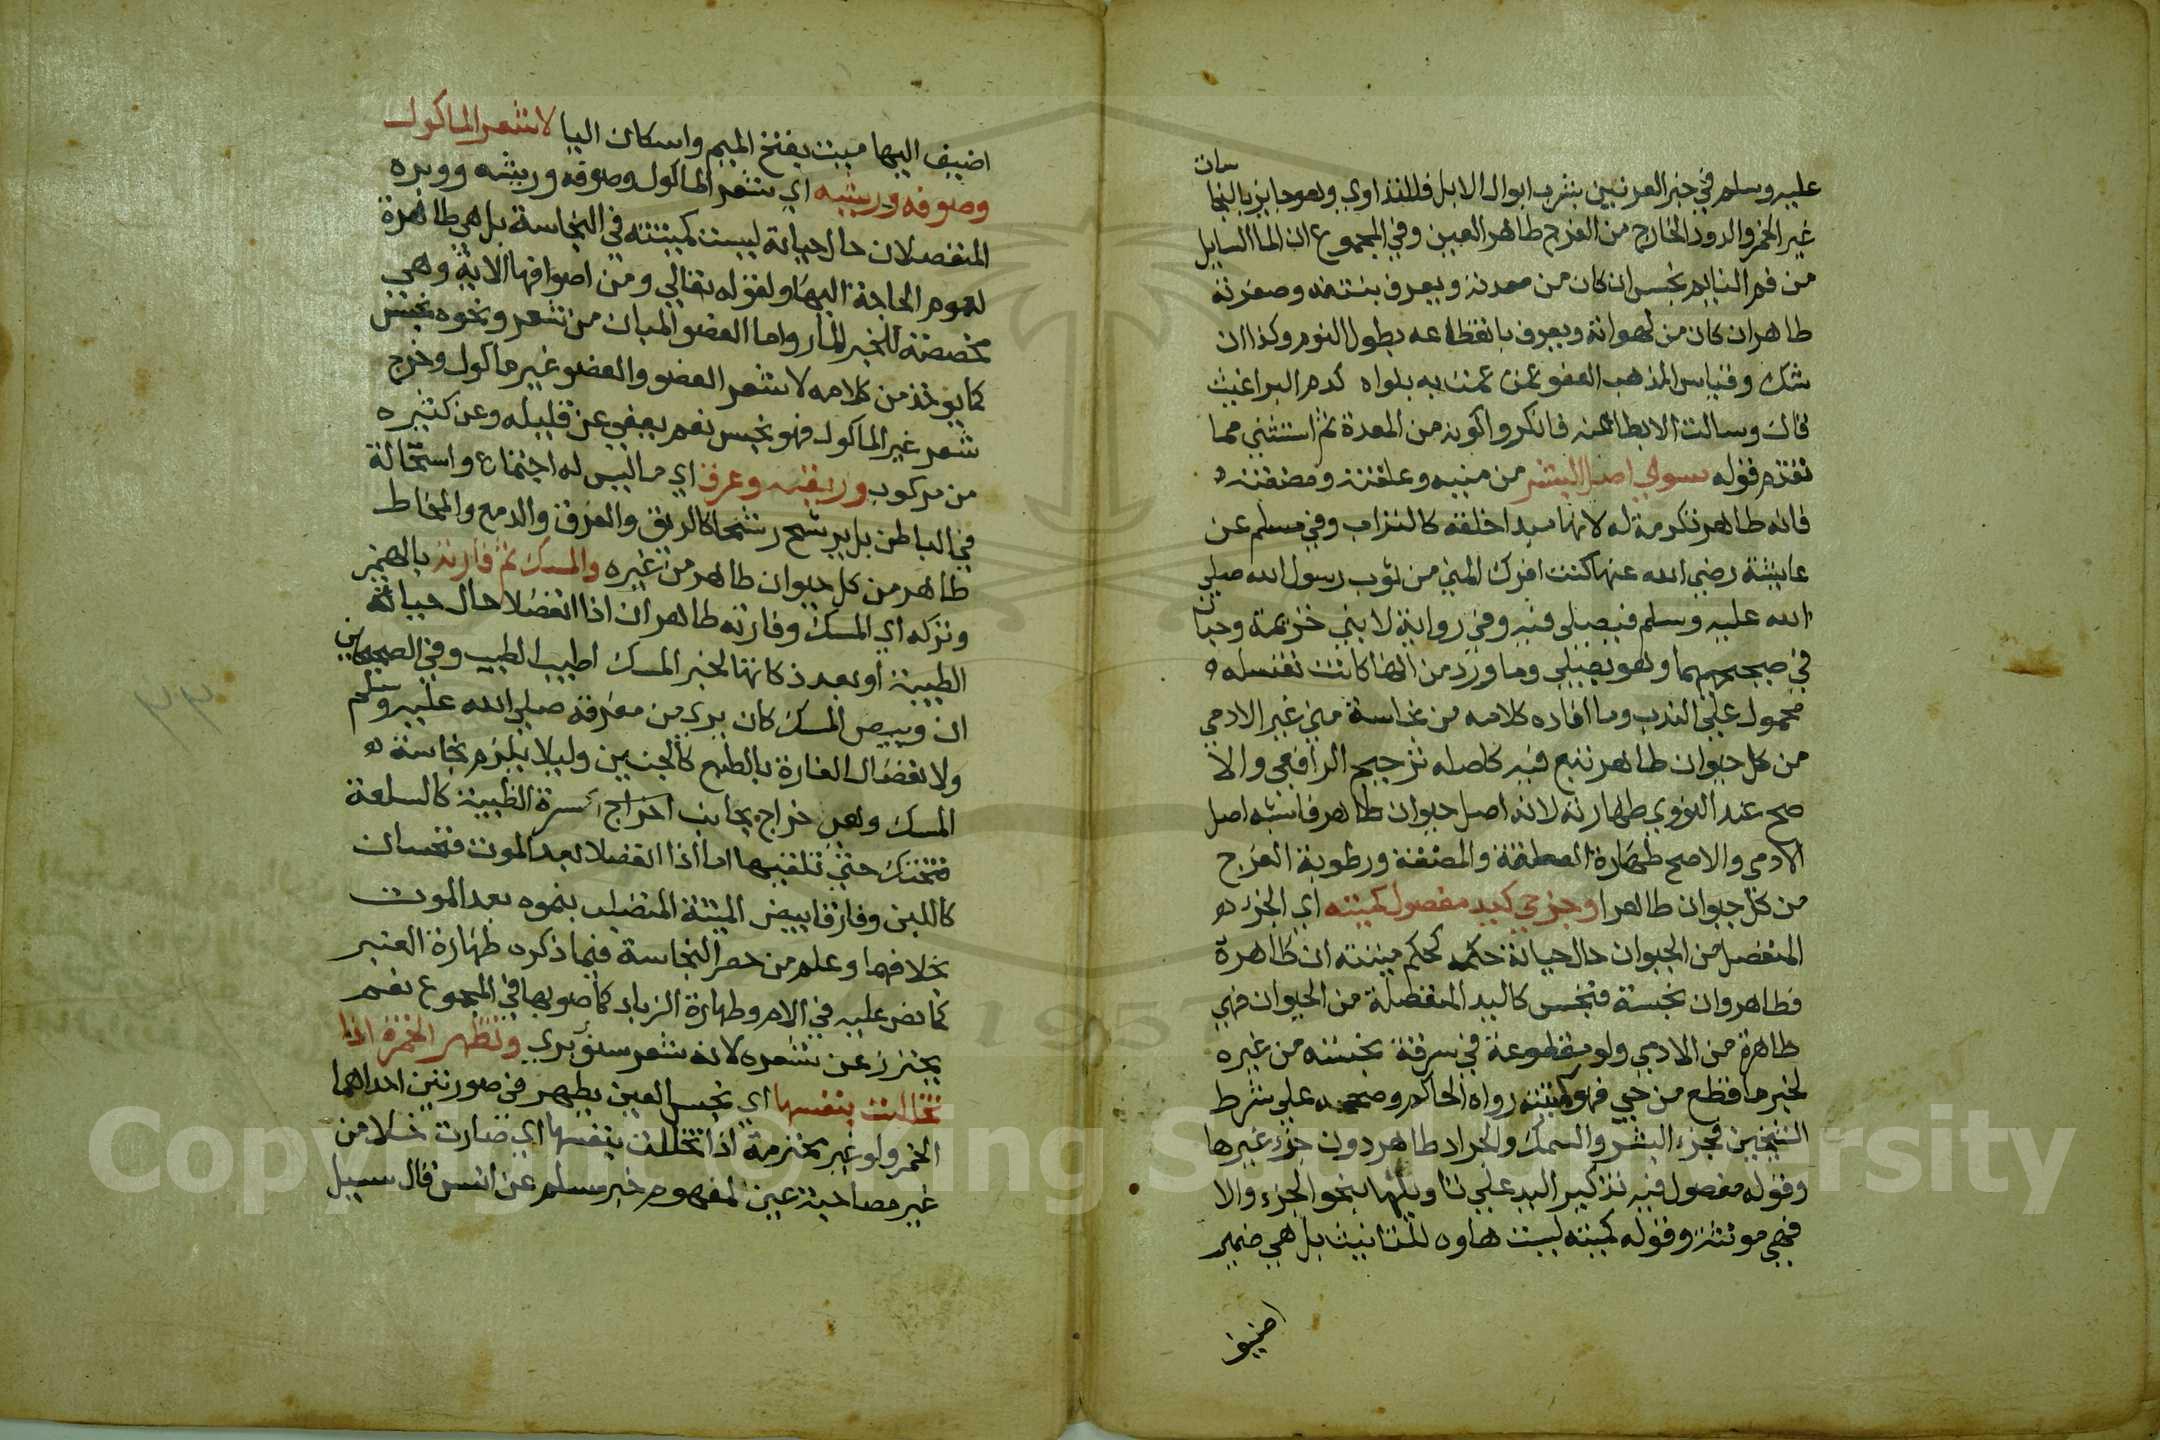 عليه وسلم في خبر العرنيين بشرب ابوال الابل فللتداوي وهو جايز بالنجا
سات
غير الخمر والدود الخارج من الفرج طاهر العين وفي المجموع ان الما السايل
من فم النايم نجس ان كان من معدته ويعرف بنتنه وصفرته
طاهر ان كان من لهواته ويعرف بانقطاعه بطول النوم وكذا ان
شك وقياس المذهب العفو عمن عمت به بلواه كدم البراغيث
قال وسالت الاطبا عنه فانكروا كونه من المعدة ثم استثني مما
تقدم قوله سوي اصل البشر من منيه وعلقته ومضغته
فانه طاهر تكرمة له لانها مبدا خلقه كالتراب وفي مسلم عن
عايشة رضي الله عنها كنت افرك المني من ثوب رسول الله صلي
الله عليه وسلم فيصلي فيه وفي رواية لابني خزيمة وحبان
في صحيحيهما وهو يصلي وما ورد من انها كانت تغسله
محمول علي الندب وما افاده كلامه من نجاسة مني غير الادمي
من كل حيوان طاهر تبع فيه كاصله ترجيح الرافعي والا
صح عند النووي طهارته لانه اصل حيوان طاهر فاشبه اصل
الادمي والاصح طهارة العلقة والمضغة ورطوبة الفرج
من كل حيوان طاهر او جزء حي كيد مفصول كميته اي الجزء
المنفصل من الحيوان حال حياته حكمه كحكم ميتته ان طاهرة
فطاهر وان نجسة فنجس كاليد المنفصلة من الحيوان فهي
طاهرة من الادمي ولو مقطوعة في سرقة نجسته من غيره
لخبر ما قطع من حي فهو كميتته رواه الحاكم وصححه علي شرط
الشيخين فجزء البشر والسمك والجراد طاهر دون جزء غيرها
وقوله مفصول فيه تذكير اليد علي تاويلها بنحو الجزء والا
فهي مونثة وقوله كميته ليست هاوه للتانيث بل هي ضمير
اضيف
اضيف اليها ميت بفتح الميم واسكان اليا لا شعر الماكول
وصوفه وريشه اي شعر الماكول وصوفه وريشه ووبره
المنفصلان حال حياته ليست كميتته في النجاسة بل هي طاهرة
لعموم الحاجة اليها ولقوله تعالي ومن اصوافها الاية وهي
مخصصة للخبر المار واما العضو المبان من شعر ونحوه نجس
كما يوخذ من كلامه لا شعر العضو والعضو غير ماكول وخرج
شعر غير الماكول فهو نجس نعم يعفي عن قليله وعن كثيره
من مركوب وريقه وعرق اي ما ليس له اجتماع واستحالة
في الباطن بل يرشح رشحا كالريق والعرق والدمع والمخاط
طاهر من كل حيوان طاهر من غيره والمسك ثم فارته بالهمز
وتركه اي المسك وفارته طاهران اذا انفصلا حال حياة
الظبية او بعد ذكاتها لخبر المسك اطيب الطيب وفي الصحيحين
ان وبيص المسك كان يري من مفرقه صلي الله عليه وسلم
ولانفصال الفارة بالطبع كالجنين وليلا يلزم نجاسة
المسك وهي خراج بجانب سرة الظبية كالسلعة
فتحتك حتي تلقيها اما اذا انفصلا بعد الموت فنجسان
كاللبن وفارقا بيض الميتة المتصلب بنموه بعد الموت
بخلافهما وعلم من حصر النجاسة فيما ذكره طهارة العنبر
كما نص عليه في الام وطهارة الزباد كما صوبها في المجموع نعم
يحترز عن شعره لانه شعر سنور بري وتطهر الخمرة اذا
تخللت بنفسها اي نجس العين يطهر في صورتين احداهما
الخمر ولو غير محترمة اذا تخللت بنفسها اي صارت خلا من
غير مصاحبة عين لمفهوم خبر مسلم عن انس قال سيل
Copyright © King Saud University
1957